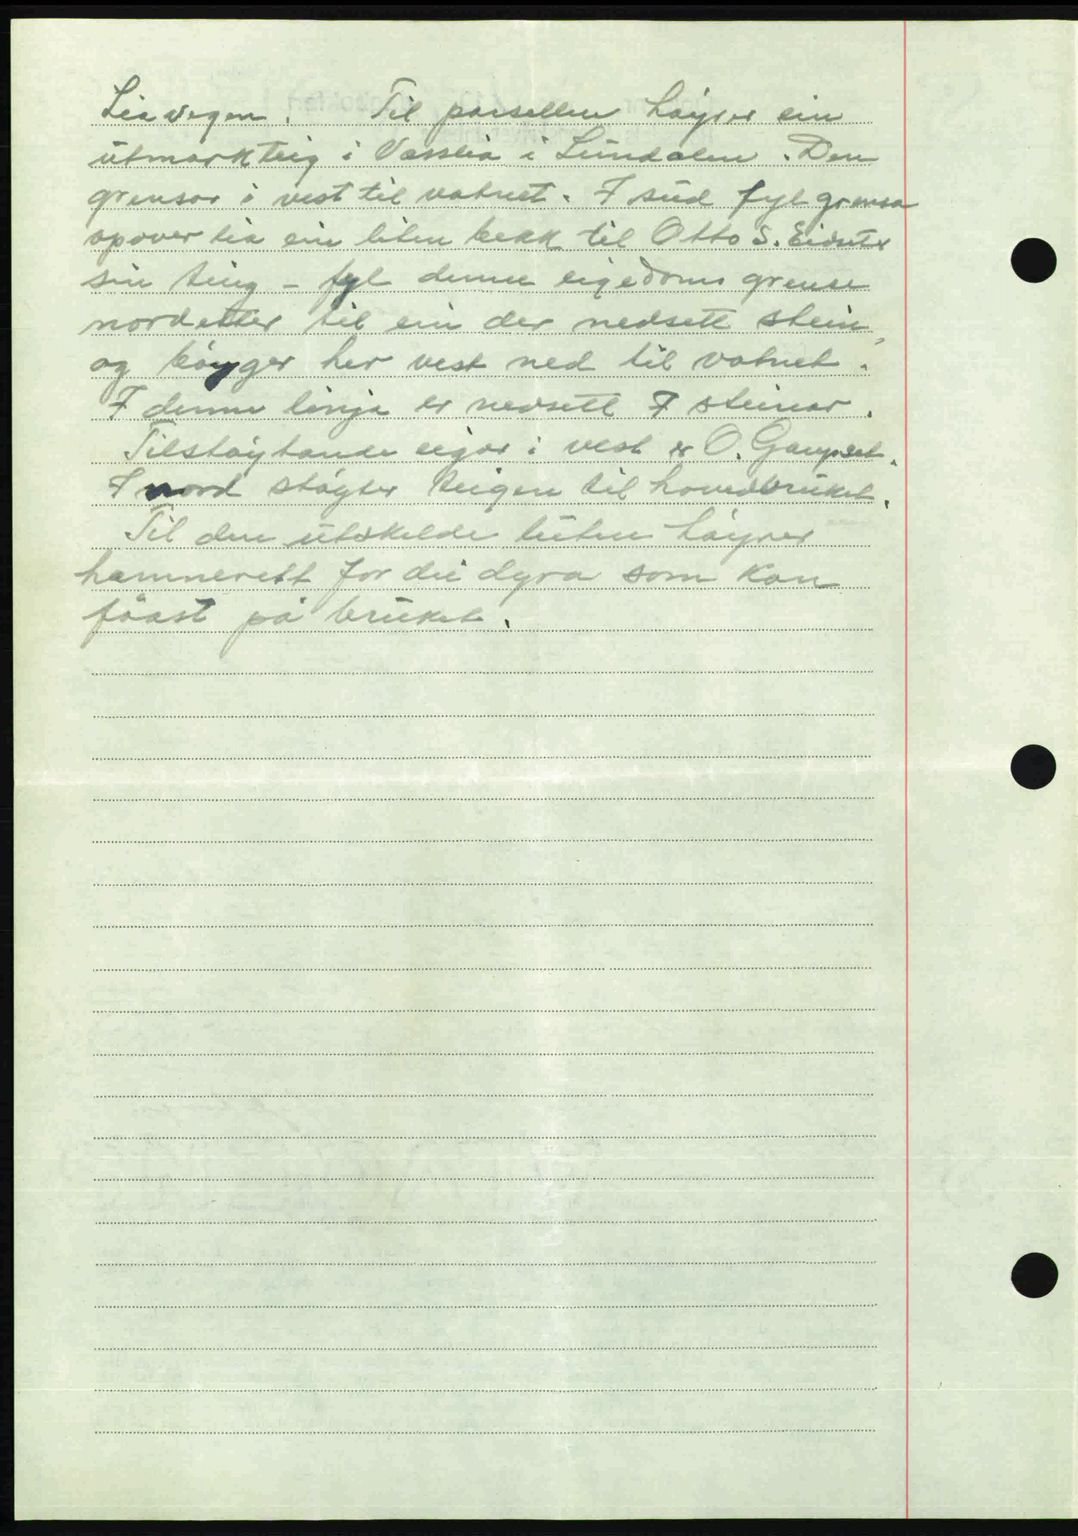 Liavegen. Til parsellen høyrer ein
utmarkteig i Vasslia i Sunndalen. Den
grensar i vest til vatnet. I sud fyl grensa
opover lia ein liten bekk til Otto S. Eidset
sin teig - fyl denne eigedoms grense
nordetter til ein der nedsett stein
og bøyger her vest ned til vatnet.
I denne linja er nedsett 7 steinar.
Tilstøytande eigar i vest er O. Gaupset.
I nord støyter teigen til hovedbruket.
Til den utskilde luten høyrer
hamnerett for dei dyra som kan
föast på bruket.